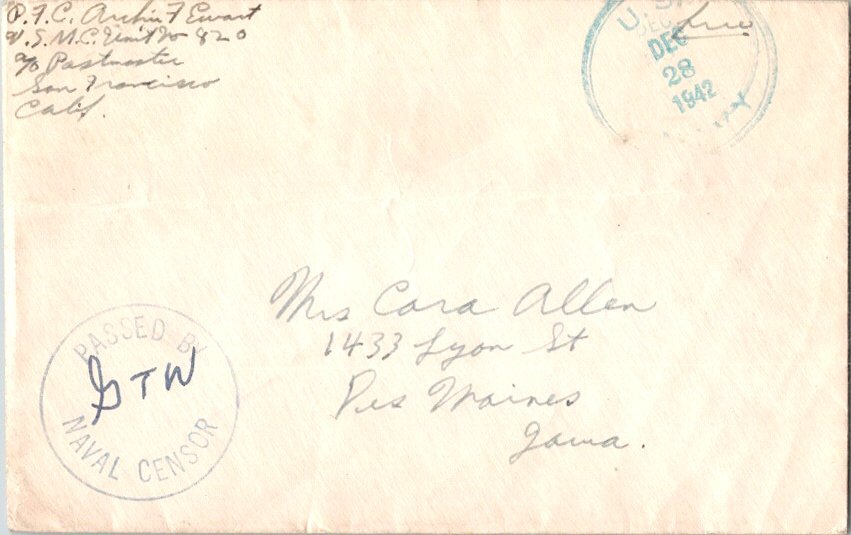 P.F.C. Archie F Ewart
U.S.M.C. Unit No 820
c/o Postmaster
San Francisco
Calif.
U.S.
Free
DEC
28
1942
Mrs Cora Allen
1433 Lyon St
Des Moines
Iowa.
PASSED BY
GTW
NAVAL CENSOR